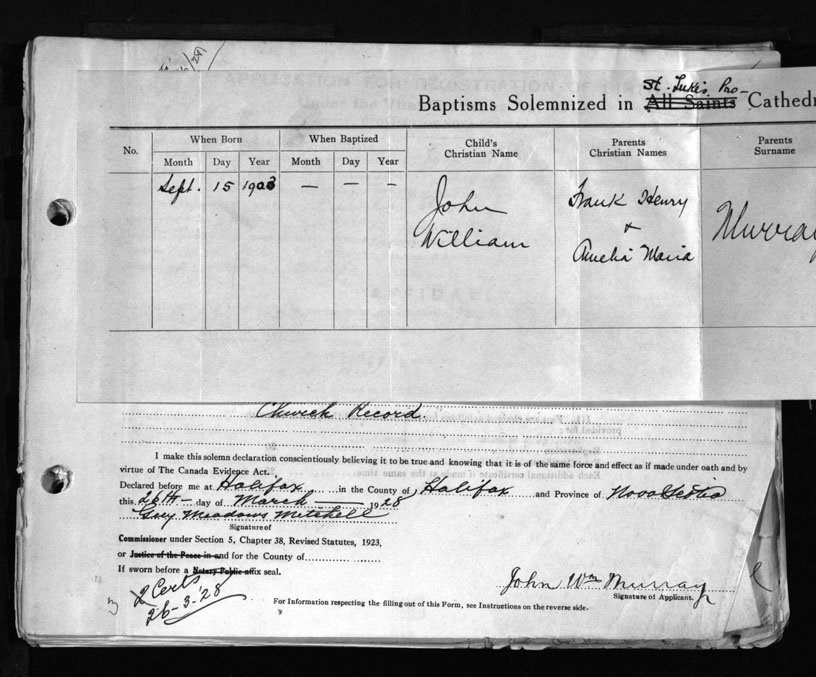 St. Luke's Pro-
Baptisms Solemnized in All Saints Cathedr
No.
When Born
When Baptized
Child's
Christian Name
Parents
Christian Names
Parents
Surname
Month Day Year Month Day Year
Sept. 15 1903 — — —
John
William
Frank Henry
+
Amelia Maria
Murray
Church Record.
I make this solemn declaration conscientiously believing it to be true and knowing that it is of the same force and effect as if made under oath and by
virtue of The Canada Evidence Act.
Declared before me at Halifax in the County of Halifax and Province of Nova Scotia
this 26th day of March 1928
Guy Meadows Mitchell
Signature of
Commissioner under Section 5, Chapter 38, Revised Statutes, 1923,
or Justice of the Peace in and for the County of
If sworn before a Notary Public affix seal.
John Wm Murray
Signature of Applicant.
2 Certs
26-3-'28
For Information respecting the filling out of this Form, see Instructions on the reverse side.
9